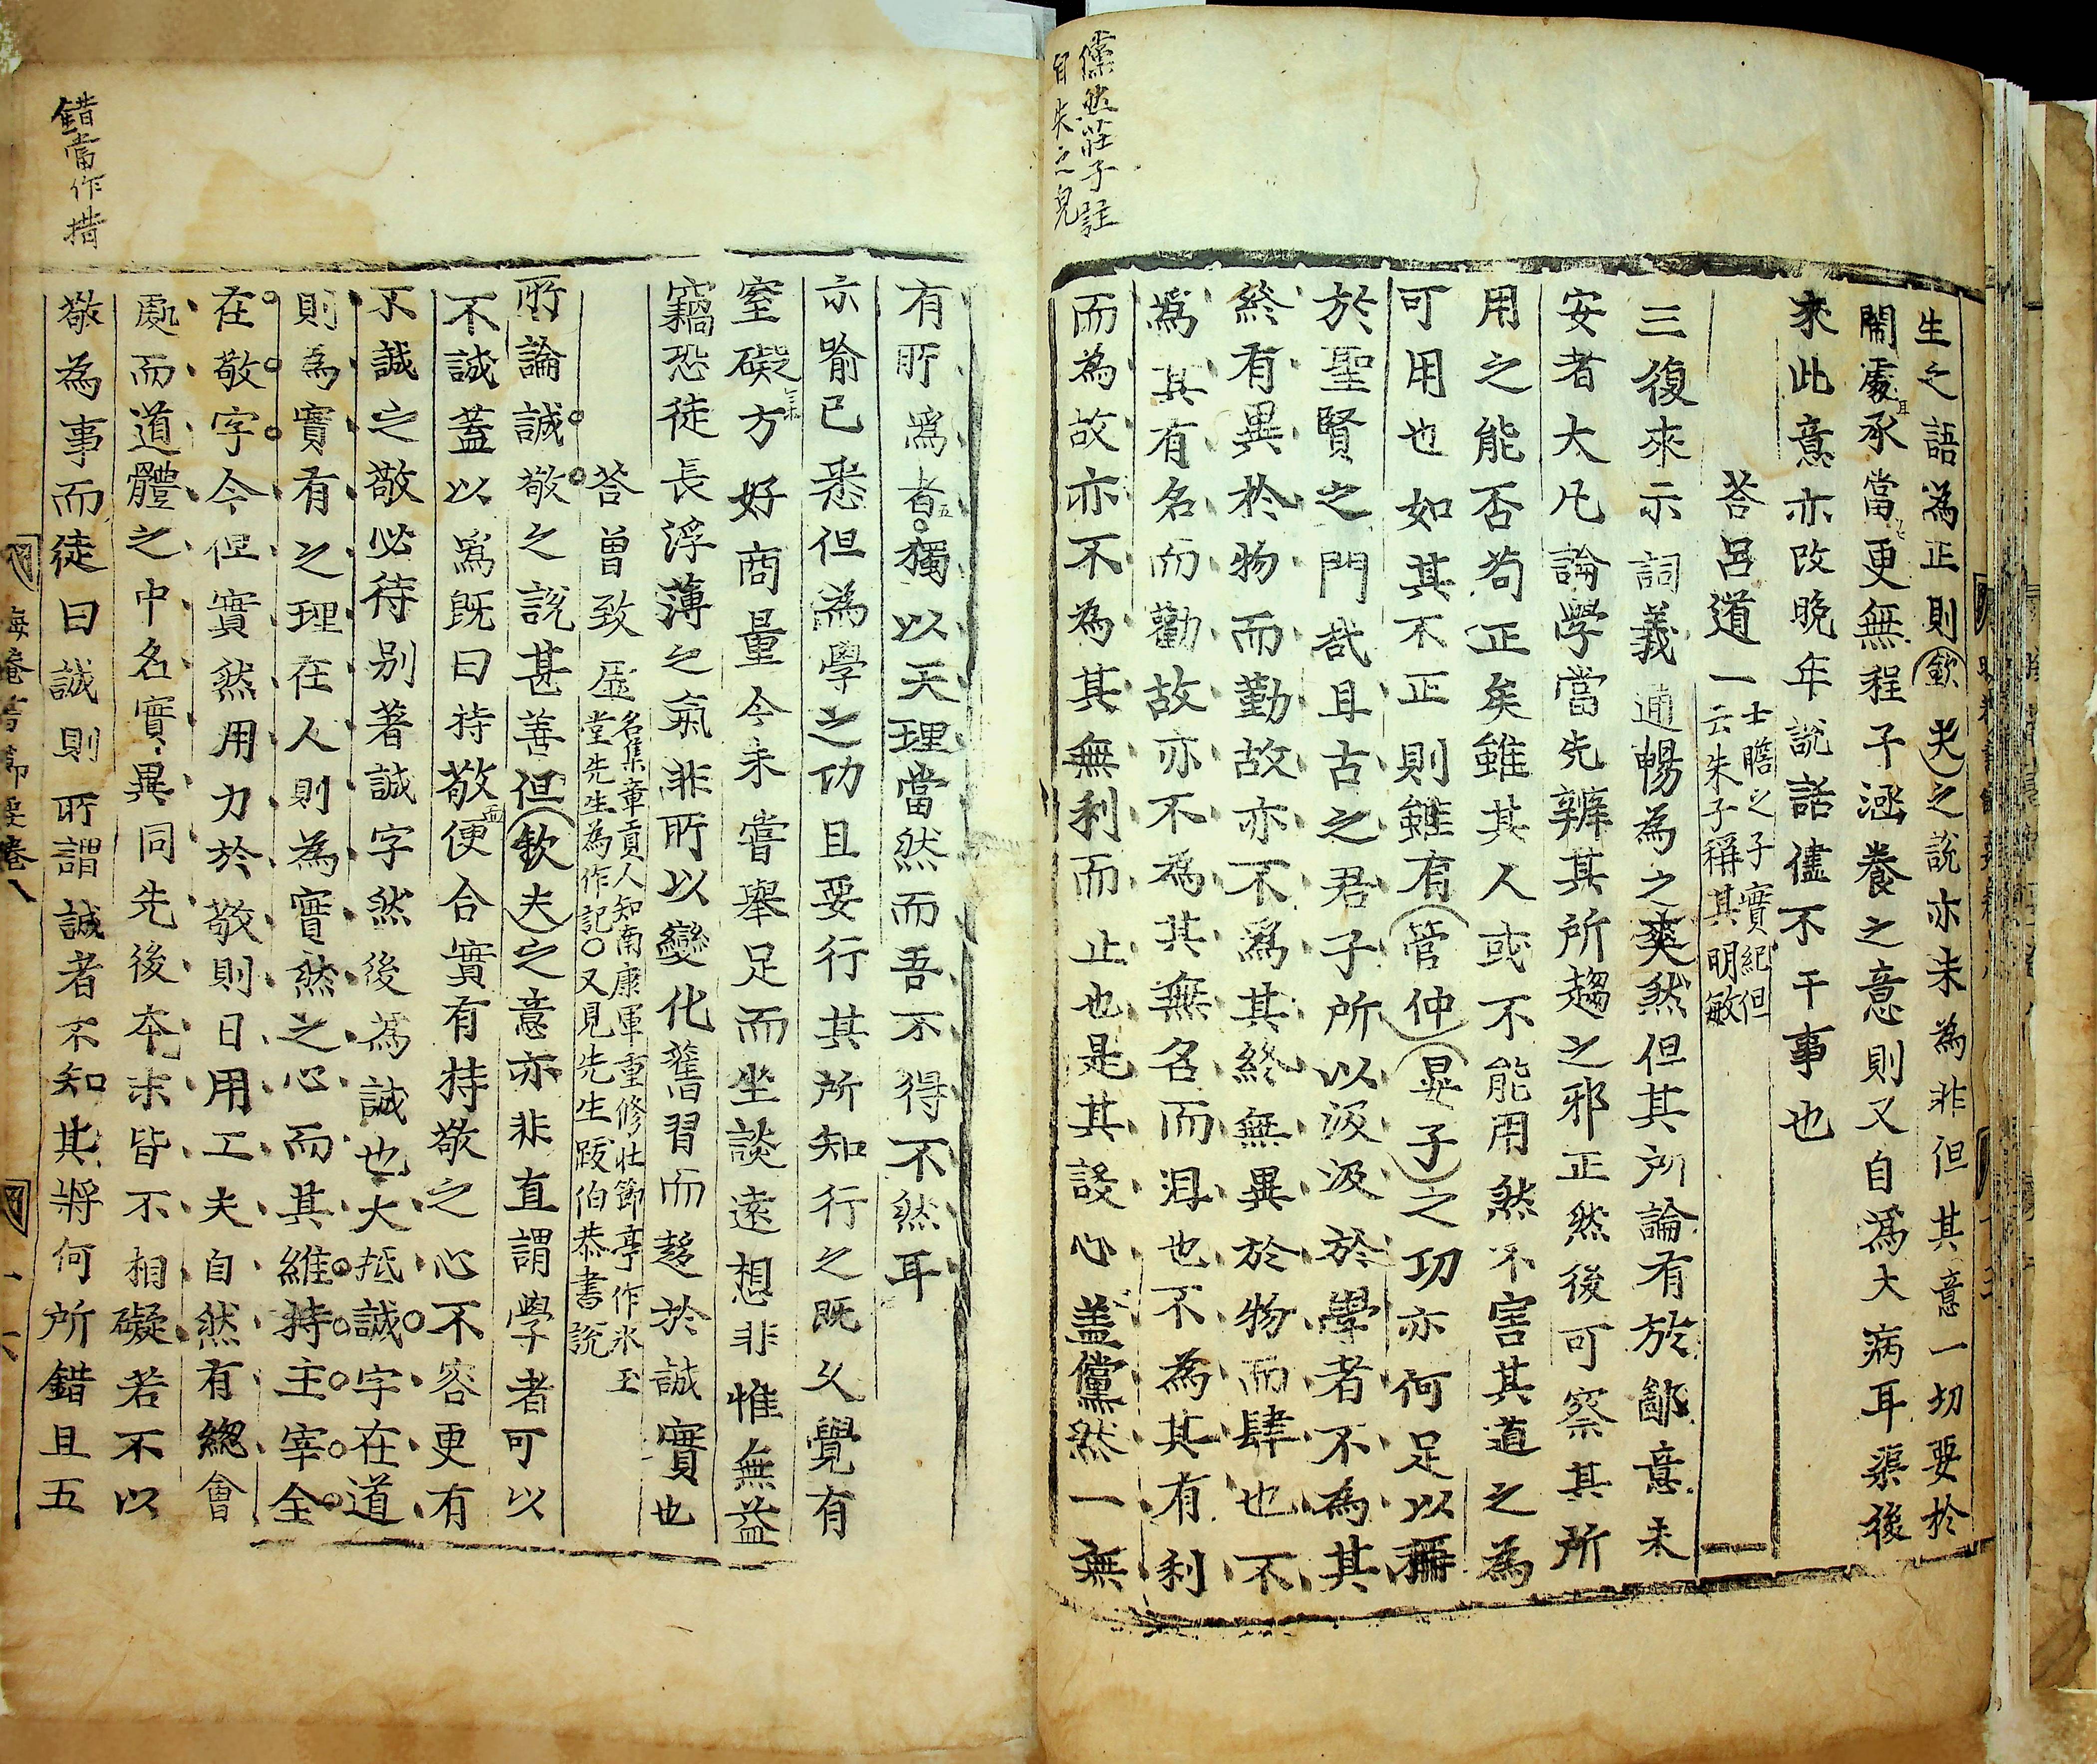 儻然莊子註
自失之皃
生之語為正則欽夫之說亦未為非但其意一切要於
鬧處承當更無程子涵養之意則又自爲大病耳渠後
來此意亦改晚年說話儘不干事也
荅呂道一
士瞻之子實紀但
云朱子稱其明敏
三復來示詞義通暢為之爽然但其所論有於鄙意未
安者大凡論學當先辨其所趨之邪正然後可察其所
用之能否苟正矣雖其人或不能用然不害其道之為
可用也如其不正則雖有管仲晏子之功亦何足以稱
於聖賢之門哉且古之君子所以汲汲於學者不為其
終有異於物而勤故亦不爲其終無異於物而肆也不
爲其有名而勸故亦不為其無名而沮也不為其有利
而為故亦不為其無利而止也是其設心盖儻然一無
有所爲者獨以天理當然而吾不得不然耳
示喻已悉但為學之功且要行其所知行之既久覺有
窒礙方好商量今未嘗舉足而坐談遠想非惟無益
竊恐徒長浮薄之氣非所以變化舊習而趍於誠實也
荅曾致虛
名集章貢人知南康軍重修壯節亭作氷玉
堂先生為作記○又見先生跋伯恭書說
所論誠敬之說甚善但欽夫之意亦非直謂學者可以
不誠蓋以爲既曰持敬便合實有持敬之心不容更有
不誠之敬必待别著誠字然後為誠也大抵誠字在道
則爲實有之理在人則為實然之心而其維持主宰全
在敬字今但實然用力於敬則日用工夫自然有緫會
處而道體之中名實異同先後本末皆不相礙若不以
敬為事而徒曰誠則所謂誠者不知其將何所錯且五
錯當作措
晦菴書節要卷八